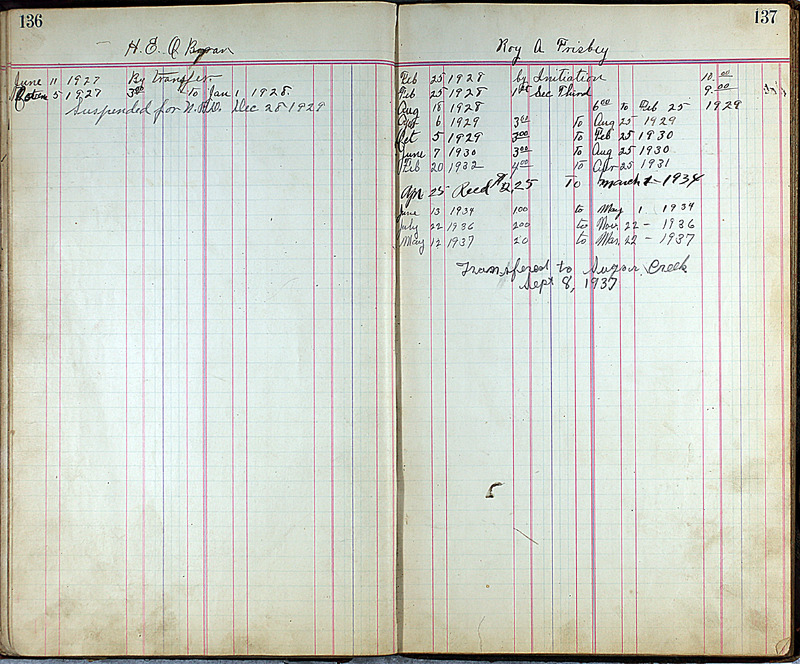 136
H. E. O. Bryan
June 11 1927 By transfer.
5 1927 3 00 To Jan 1 1928.
Suspended for N.P.D. Dec 28 1929
137
Roy A Frisbey
Feb 25 1928 by Initiation 10.00
Feb 25 1928 1st Sec Third 9.00
Aug 18 1928 6 00 To Feb 25 1929
6 1929 3 00 To Aug 25 1929
Oct 5 1929 3 00 To Feb 25 1930
June 7 1930 3 00 To Aug 25 1930
Feb 20 1932 4 00 To Apr 25 1931
Apr 25 Recd $2.25 To march 1 - 1934
June 13 1934 100 to May 1 1934
July 22 1936 200 to Nov. 22 - 1936
May 12 1937 20 to Mar. 22 - 1937
Transfered to Sugar Creek
Sept 8, 1937